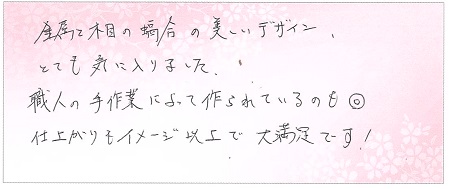 金属と木目の融合の美しいデザイン、
とても気に入りました。
職人の手作業によって作られているのも◎
仕上がりもイメージ以上で大満足です!